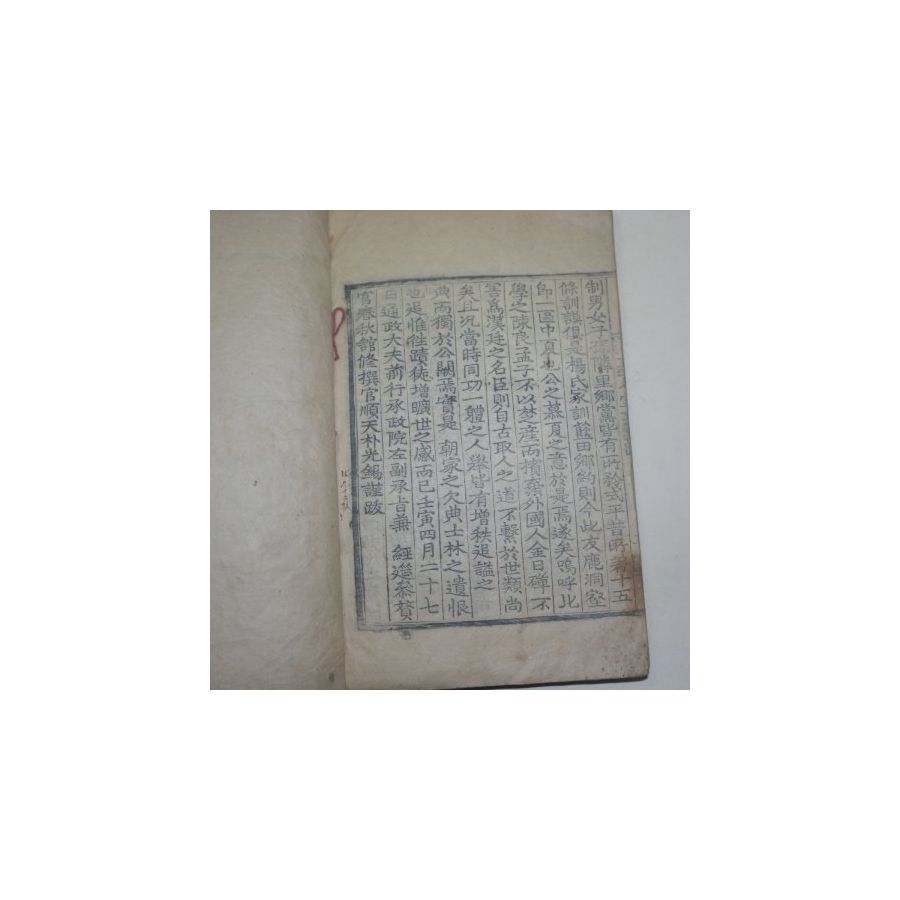 制男女子孫隣里鄉黨皆有所發式平昔所著十五
條訓謨倡義楊氏家訓藍田鄉約則今此友鹿洞壑
師一區中夏也公之慕夏之意於是焉遂矣嗚呼北
學之陳良孟子不以楚産而擯斥外國人金日磾不
害爲漢廷之名臣則自古取人之道不繫於世類尚
矣且况當時同功一體之人擧皆有增秩追謚之
典而獨於公闕焉實是 朝家之欠典士林之遺恨
也追惟徃蹟徒增曠世之感而已壬寅四月二十七
日通政大夫前行承政院左副承旨兼 經筵叅贊
官春秋館修撰官順天朴光錫謹跋